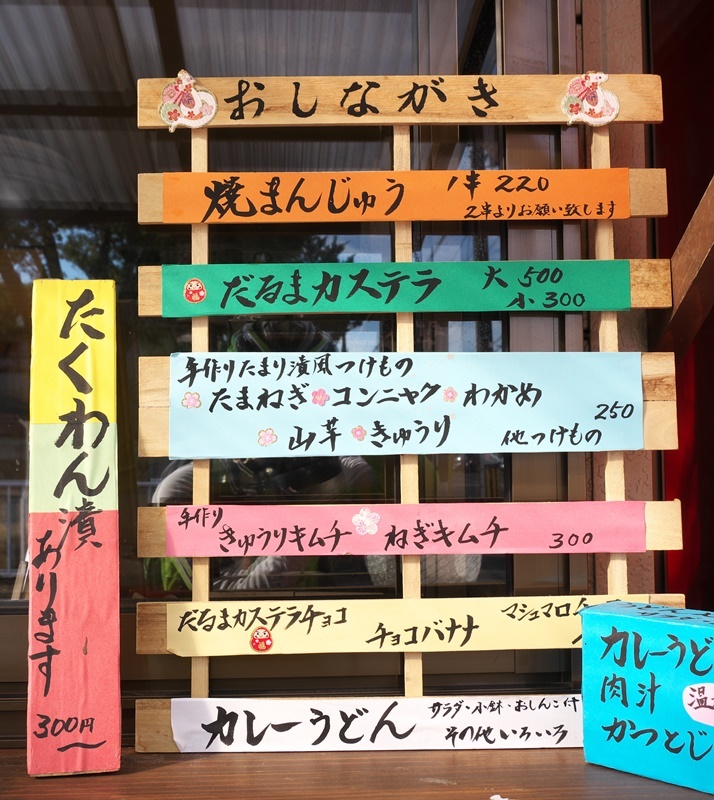 おしながき
焼まんじゅう 1串 220
2串よりお願い致します
だるまカステラ 大 500
小 300
手作りたまり漬風つけもの
たまねぎ コンニャク わかめ
250
山芋 きゅうり 他つけもの
手作り
きゅうりキムチ ねぎキムチ 300
だるまカステラチョコ チョコバナナ マシュマロチ
カレーうどん サラダ・小鉢・おしんこ付
その他いろいろ
たくわん漬
あります
300円
カレーうど
肉汁
かつとじ
温